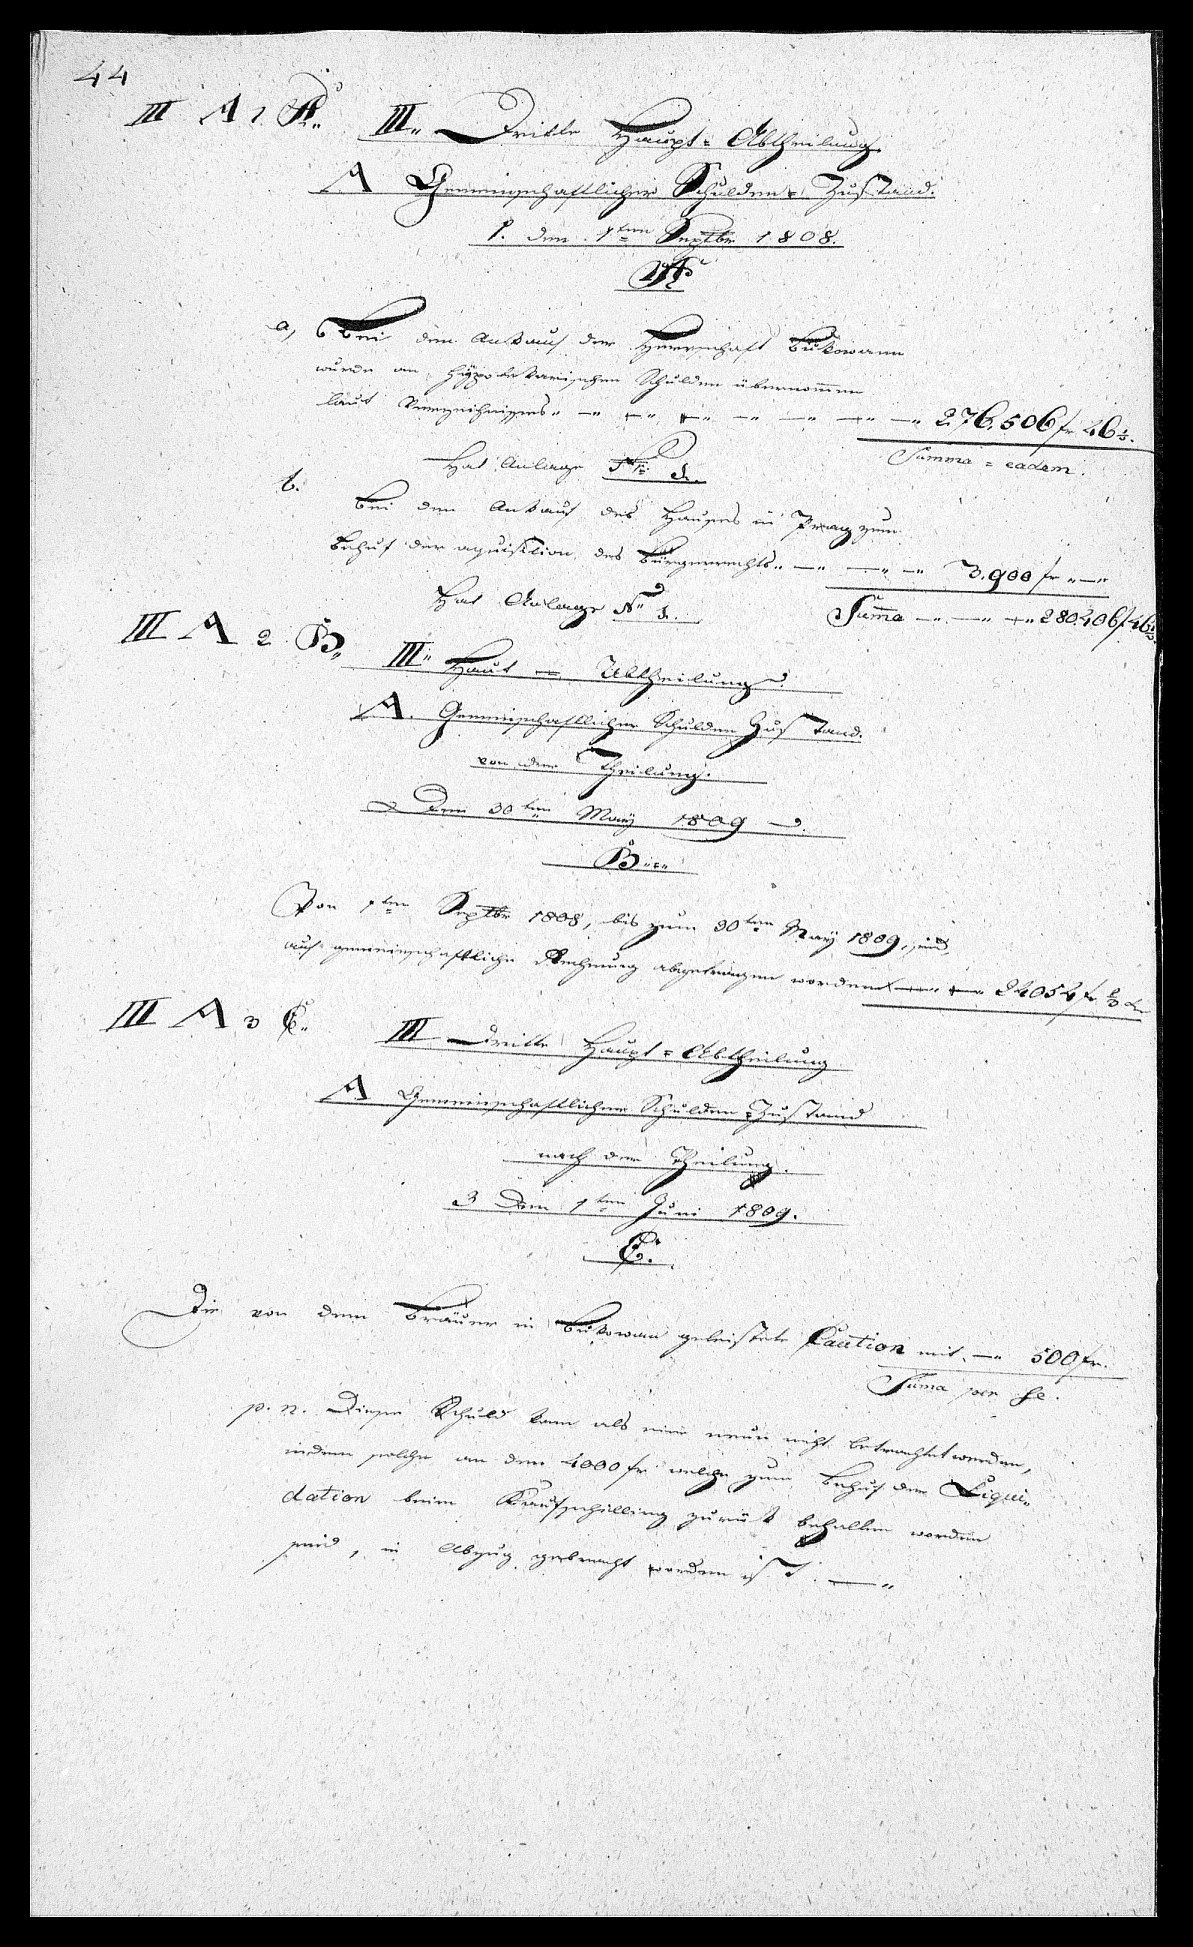 44
III A 1 A.
III. Dritte Haupt-Abtheilung.
A Gemeinschaftlicher Schulden-Zustand.
1. den 1ten Septbr 1808.
A
a, Bei dem Ankauf der Herrschaft Bukowan
wurde an hÿpothekarischen Schulden übernommen
laut Verzeichnisses 276,506 fr 46
Summa = eadem.
Hat Anlage
b. Bei dem Ankauf des Hauses in Prag zum
Behuf der aquisition des Bürgerrechts 3.900 fr
Hat Anlage Sum̄a 280.406 f 46
III A 2 B.
III. Haut - Abtheilung
A. Gemeinschaftlicher Schulden Zustand.
vor der Theilung.
2 Den 30ten Maÿ 1809
B.
Von 1ten Septbr 1808, bis zum 30ten Maÿ 1809, sind,
auf gemeinschaftliche Rechnung abgetragen worden 24054 fr
III A 3 C.
III Dritte Haupt-Abtheilung
A Gemeinschaftlicher Schulden-Zustand
nach der Theilung.
3 Den 1ten Juni 1809.
C.
Die von dem Bräuer in Bukowan geleistete Caution mit 500 fr.
Sum̄a per se.
p. n. Diese Schuld kann als eine neue nicht betrachtet werden,
indem solche an den 4000 fr welche zum Behuf der Liqui-
dation beim Kaufschilling zurük behalten worden
sind, in Abzug gebracht worden ist.